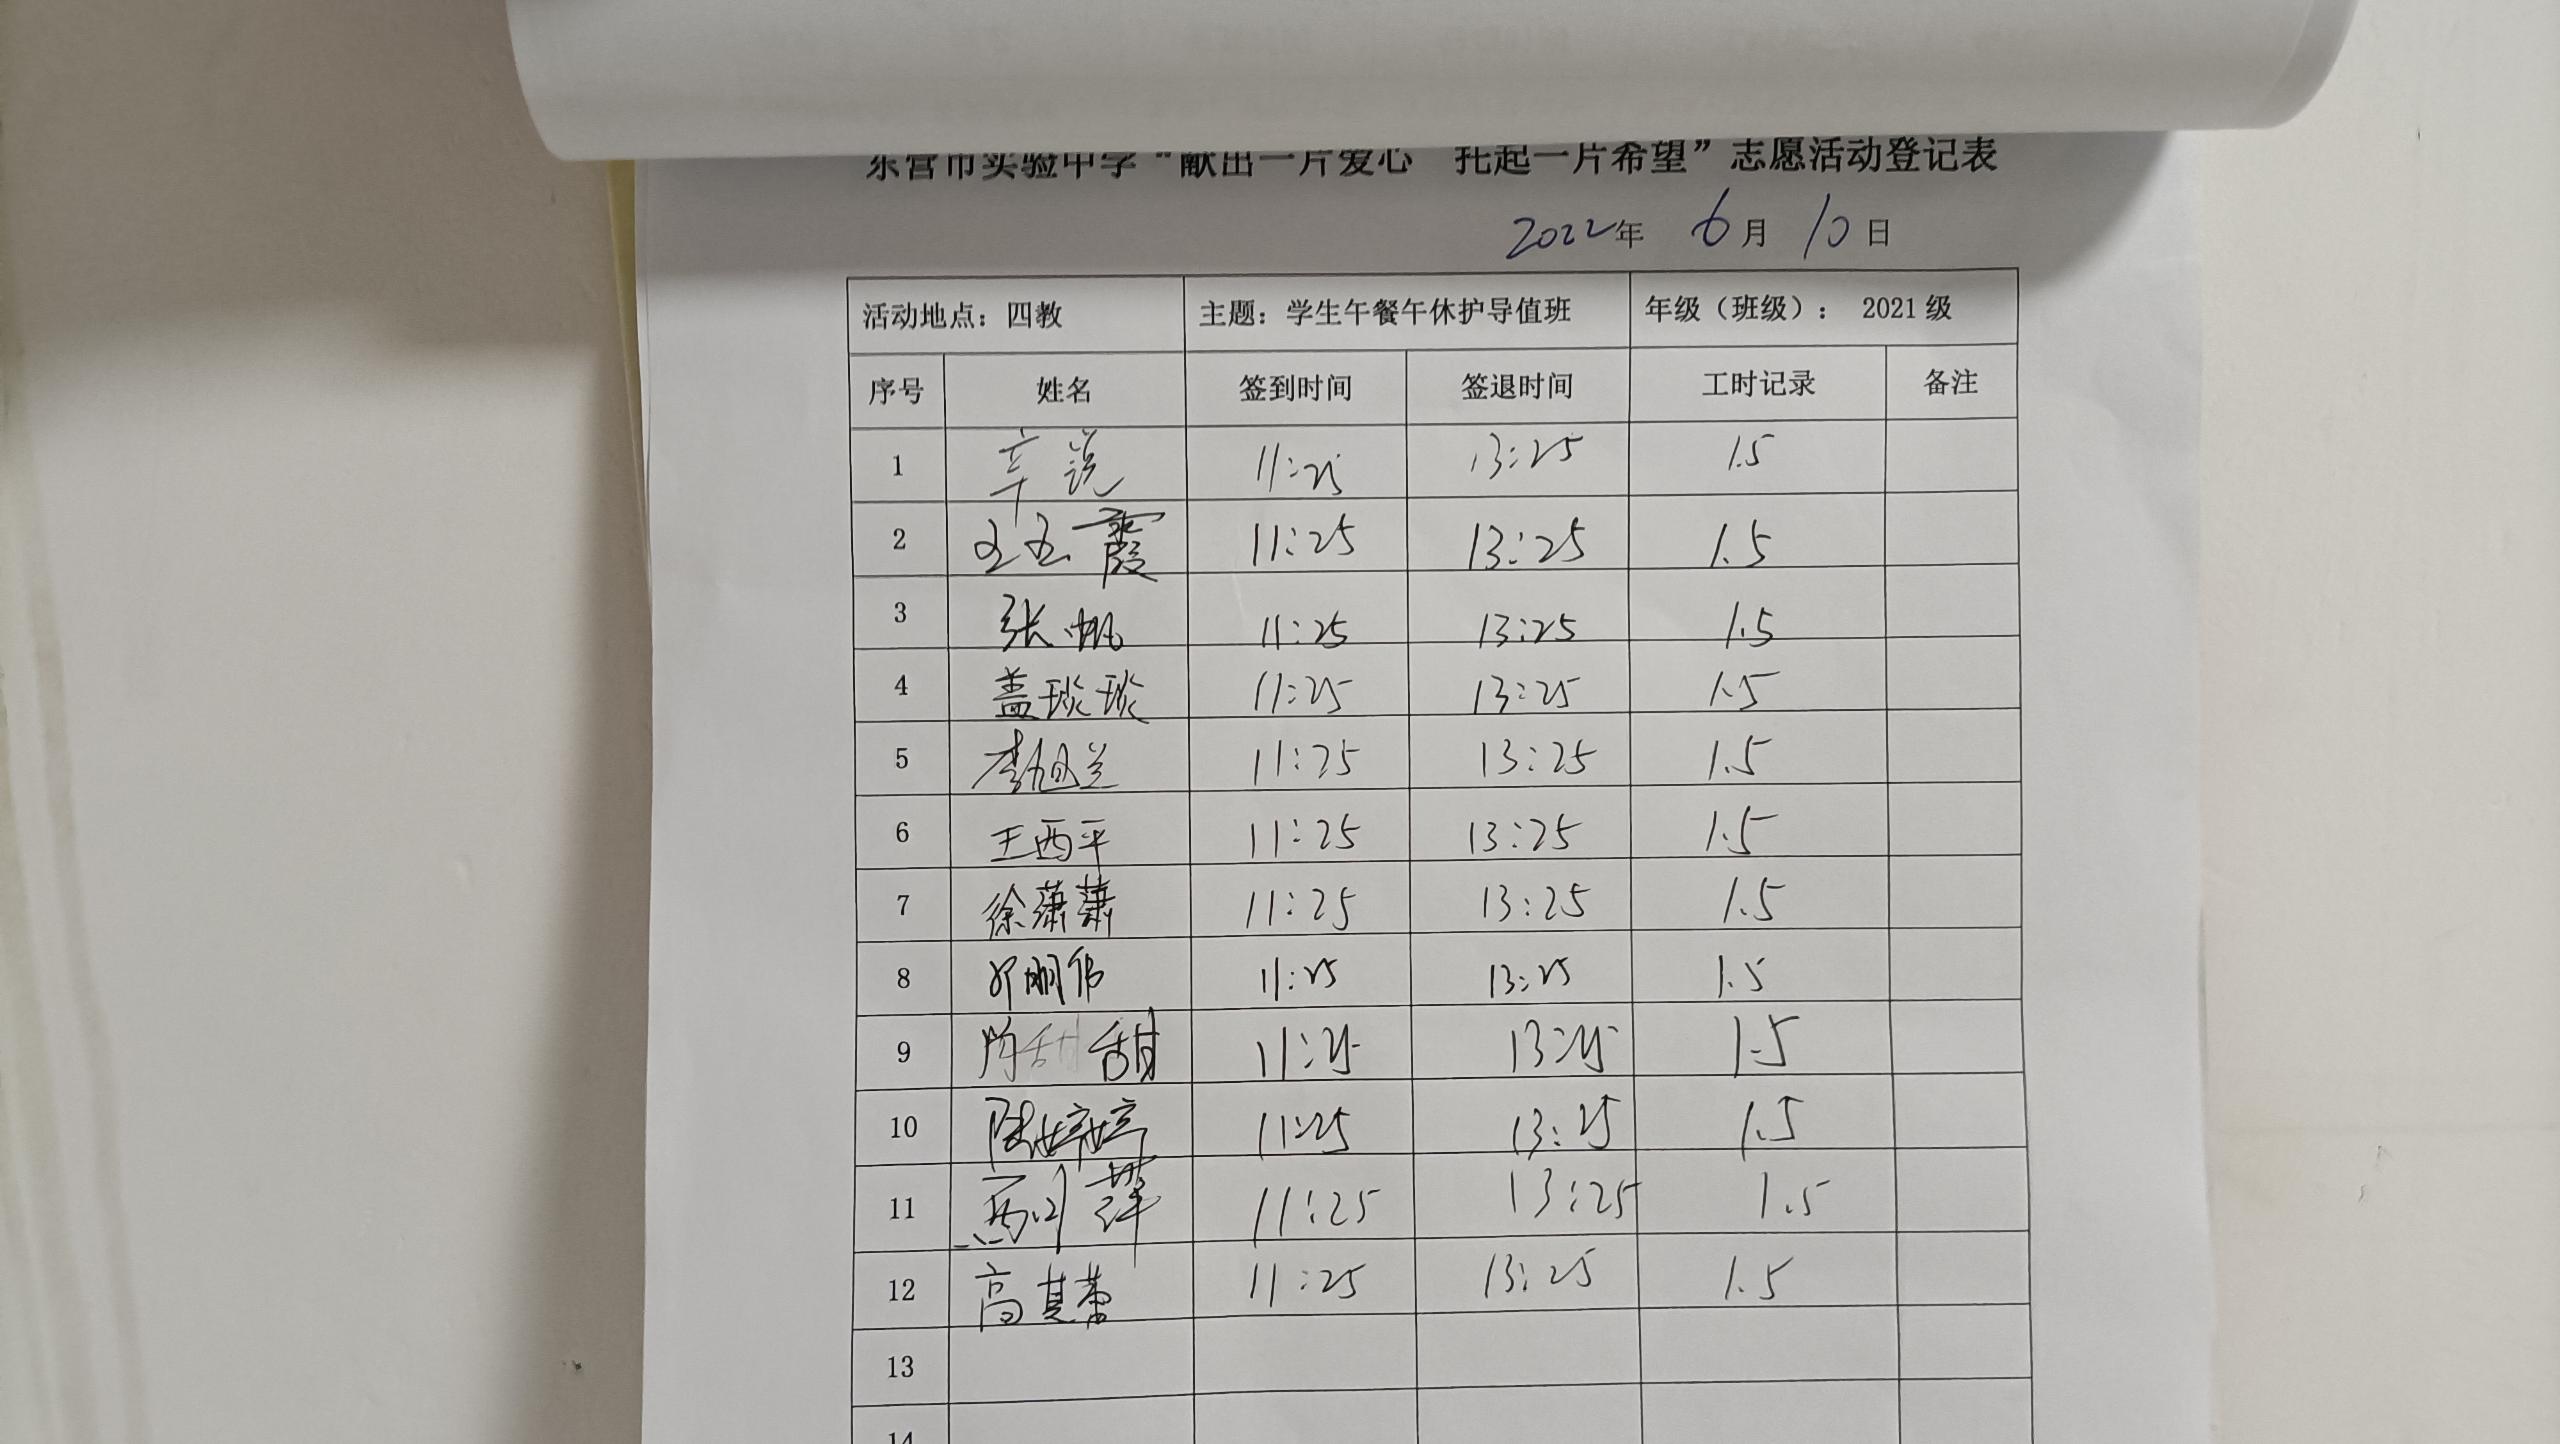 东营市实验中学“献出一片爱心 托起一片希望”志愿活动登记表
2022年 6月 10日
活动地点：四教 主题：学生午餐午休护导值班 年级（班级）： 2021级
序号 姓名 签到时间 签退时间 工时记录 备注
1 辛说 11:25 13:25 1.5
2 王玉霞 11:25 13:25 1.5
3 张帆 11:25 13:25 1.5
4 盖琰琰 11:25 13:25 1.5
5 李旭兰 11:25 13:25 1.5
6 王西平 11:25 13:25 1.5
7 徐萧萧 11:25 13:25 1.5
8 11:25 13:25 1.5
9 甜甜 11:25 13:25 1.5
10 陈婷婷 11:25 13:25 1.5
11 11:25 13:25 1.5
12 高其蕾 11:25 13:25 1.5
13
14